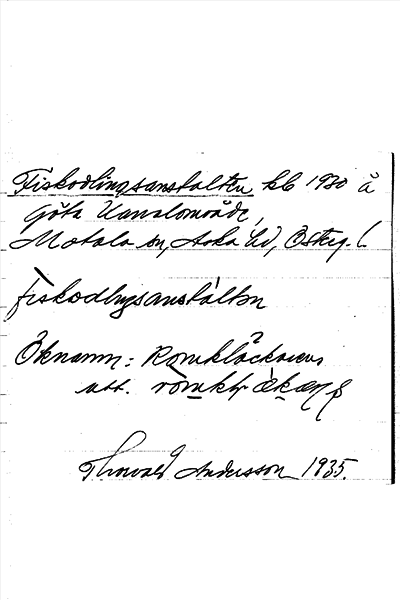 Fiskodlingsanstalten kb 1930 å
Göta Kanalområde,
Motala sn, Aska hd, Östg. l.
fiskodlingsanstalten
Öknamn: Romkläckaren
utt.
Thorvald Andersson 1935.